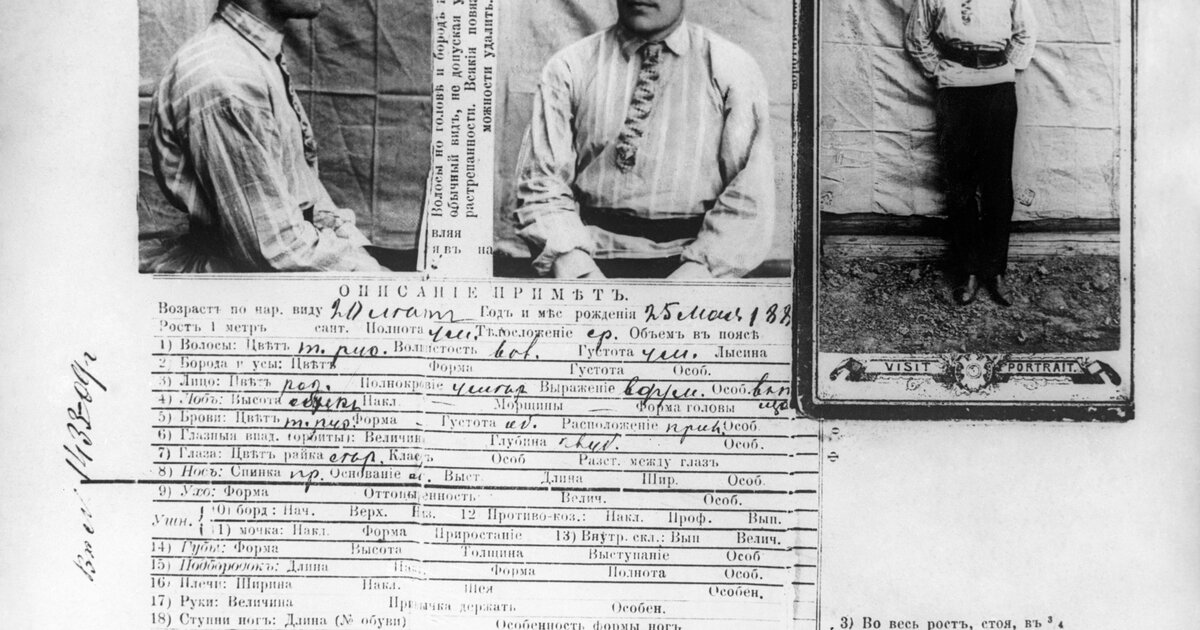 Волосы по головѣ и бородѣ
обычный видъ, не допуская
растрепанности. Всякія
можности удалить.
вляя
явъ на
ОПИСАНІЕ ПРИМѢТЪ.
Возрастъ по нар. виду 20 лѣтъ Годъ и мѣс рожденія 25 Мая 188
Ростъ 1 метръ сант. Полнота ум. Тѣлосложеніе ср. Объемъ въ поясѣ
1) Волосы: Цвѣтъ т. рус. Волнистость вол. Густота ум. Лысина
2) Борода и усы: Цвѣтъ Форма Густота Особ.
3) Лицо: Цвѣтъ роз. Полнокровіе Выраженіе вдум. Особ.
4) Лобъ: Высота Накл. Морщины Форма головы
5) Брови: Цвѣтъ т. рус. Форма Густота Расположеніе Особ.
6) Глазныя впад. (орбиты): Величин Глубина глуб. Особ.
7) Глаза: Цвѣтъ райка Класъ Особ Разст. между глазъ
8) Носъ: Спинка пр. Основаніе Выст. Длина Шир. Особ.
9) Ухо: Форма Оттопыренность Велич. Особ.
Ушн. 10) борд: Нач. Верх. Низ. 12 Противо-коз.: Накл. Проф. Вып.
11) мочка: Накл. Форма Приростаніе 13) Внутр. скл.: Вып Велич.
14) Губы: Форма Высота Толщина Выступаніе Особ
15) Подбородокъ: Длина Нак. Форма Полнота Особ.
16) Плечи: Ширина Накл. Шея Особен.
17) Руки: Величина Привычка держать Особен.
18) Ступни ногъ: Длина (№ обуви) Особенность формы ногъ
VISIT PORTRAIT.
3) Во весь ростъ, стоя, въ 3/4